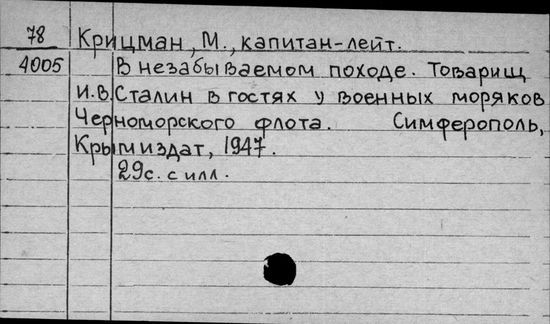 78 Крицман, М., капитан-лейт.
4005 В незабываемом походе. Товарищ
И.В. Сталин в гостях у военных моряков
Черноморского флота. Симферополь,
Крымиздат, 1947.
29с. с илл.